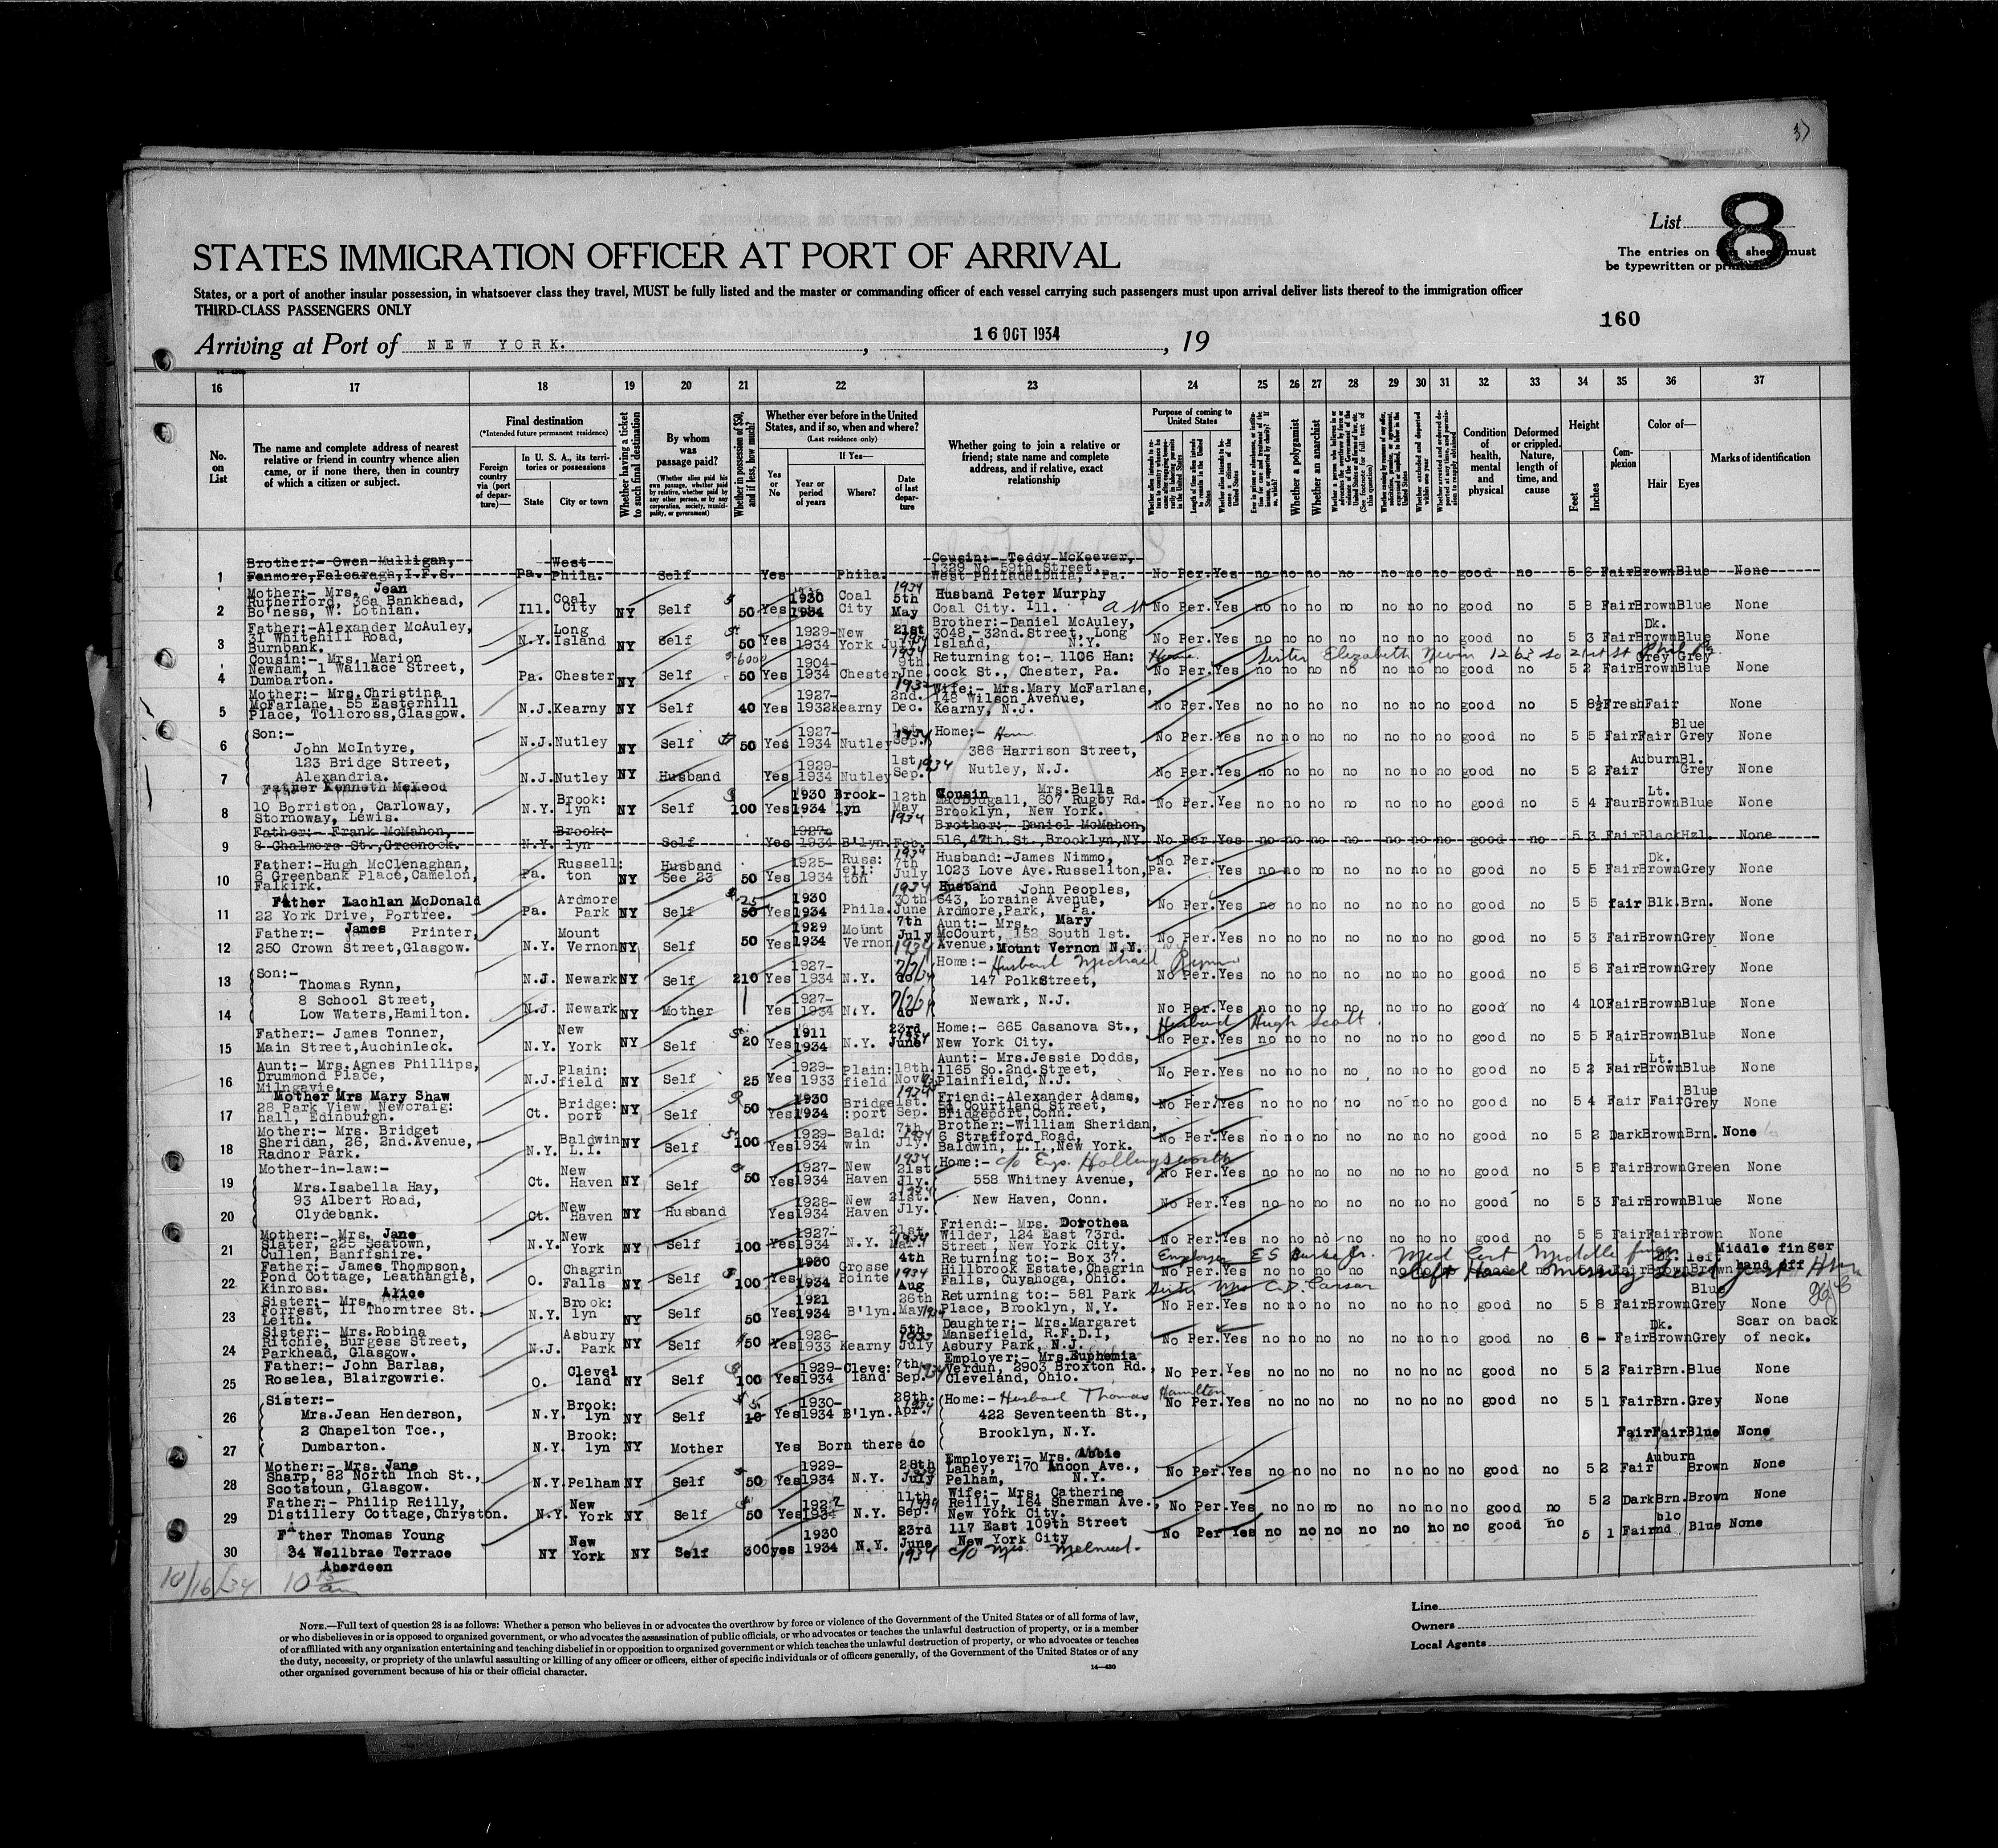 37
List 8
The entries on sheet must
be typewritten or
STATES IMMIGRATION OFFICER AT PORT OF ARRIVAL
States, or a port of another insular possession, in whatsoever class they travel, MUST be fully listed and the master or commanding officer of each vessel carrying such passengers must upon arrival deliver lists thereof to the immigration officer
THIRD-CLASS PASSENGERS ONLY
160
Arriving at Port of NEW YORK. , 16 OCT 1934 , 19
16 17 18 19 20 21 22 23 24 25 26 27 28 29 30 31 32 33 34 35 36 37
No. on List
The name and complete address of nearest
relative or friend in country whence alien
came, or if none there, then in country
of which a citizen or subject.
Final destination
(*Intended future permanent residence)
Foreign country via (port of departure)—
In U. S. A., its territories or possessions
State City or town
Whether having a ticket to such final destination
By whom was passage paid?
Whether in possession of $50, and if less, how much?
Whether ever before in the United States, and if so, when and where?
(Last residence only)
Yes or No
If Yes—
Year or period of years
Where?
Date of last departure
Whether going to join a relative or
friend; state name and complete
address, and if relative, exact
relationship
Purpose of coming to United States
Whether a polygamist
Whether an anarchist
Condition of health, mental and physical
Deformed or crippled. Nature, length of time, and cause
Height
Feet Inches
Complexion
Color of—
Hair Eyes
Marks of identification
1 Brother:- Owen Mulligan, Fanmore, Falcaragh, I.F.S. Pa. West Phila. Self Yes Phila. Cousin:- Teddy McKeever, 1329 No. 59th. Street, West Philadelphia, Pa. No Per. Yes no no no no no no no good no 5 6 Fair Brown Blue None
2 Mother:- Mrs. Jean Rutherford, 36a Bankhead, Bo'ness, W. Lothian. Ill. Coal City NY Self 50 Yes 1930 1934 Coal City 5th May 1934 Husband Peter Murphy Coal City. Ill. No Per. Yes no no no no no no no good no 5 8 Fair Brown Blue None
3 Father:-Alexander McAuley, 31 Whitehill Road, Burnbank. N.Y. Long Island NY Self 50 Yes 1929-1934 New York 21st July Brother:-Daniel McAuley, 3048,-32nd.Street, Long Island, N.Y. No Per. Yes no no no no no no no good no 5 3 Fair Dk. Brown Blue None
4 Cousin:- Mrs. Marion Newham, 1 Wallace Street, Dumbarton. Pa. Chester NY Self 50 Yes 1904-1934 Chester 9th Jne. 1934 Returning to:- 1106 Han: cock St., Chester, Pa. Sister Elizabeth Nevin No Per. Yes no no no no no no no good no 5 2 Fair Grey Grey Brown Blue None
5 Mother:- Mrs.Christina McFarlane, 55 Easterhill Place, Tollcross,Glasgow. N.J. Kearny NY Self 40 Yes 1927-1932 Kearny 2nd. Dec. Wife:- Mrs.Mary McFarlane, 148 Wilson Avenue, Kearny, N.J. No Per. Yes no no no no no no no good no 5 8½ Fresh Fair None
6 Son:- John McIntyre, N.J. Nutley NY Self 50 Yes 1927-1934 Nutley 1st Sep. Home:- No Per. Yes no no no no no no no good no 5 5 Fair Fair Blue Grey None
123 Bridge Street, 386 Harrison Street,
7 Alexandria. N.J. Nutley NY Husband Yes 1929-1934 Nutley 1st Sep. 1934 Nutley, N.J. No Per. Yes no no no no no no no good no 5 2 Fair Auburn Bl. Grey None
8 Father Kenneth McLeod 10 Borriston, Carloway, Stornoway, Lewis. N.Y. Brook: lyn NY Self 100 Yes 1930 1934 Brook-lyn 12th May 1934 Cousin Mrs.Bella MacDougall, 607 Rugby Rd. Brooklyn, New York. No Per. Yes no no no no no no no good no 5 4 Faur Lt. Brown Blue None
9 Father:- Frank McMahon, 8 Chalmers St.,Greenock. N.Y. Brook: lyn Self Yes 1927-1934 B'lyn. Feb. Brother:- Daniel McMahon, 516,47th.St.,Brooklyn,NY. No Per Yes no no no no no no no good no 5 3 Fair Black Hzl. None
10 Father:-Hugh McClenaghan, 6 Greenbank Place,Camelon, Falkirk. Pa. Russell: ton NY Husband See 23 50 Yes 1925-1934 Russ: ell: ton 7th July 1934 Husband:-James Nimmo, 1023 Love Ave.Russellton,Pa. No Per. Yes no no no no no no no good no 5 5 Fair Dk. Brown Grey None
11 Father Lachlan McDonald 22 York Drive, Portree. Pa. Ardmore Park NY Self 50 Yes 1930 1934 Phila. 30th June 1934 Husband John Peoples, 643, Loraine Avenue, Ardmore,Park, Pa. No Per. Yes no no no no no no no good no 5 5 fair Blk. Brn. None
12 Father:- James Printer, 250 Crown Street,Glasgow. N.Y. Mount Vernon NY Self 50 Yes 1929 1934 Mount Vernon 7th July 1934 Aunt:- Mrs. Mary McCourt, 152 South 1st. Avenue, Mount Vernon N.Y. No Per. Yes no no no no no no no good no 5 3 Fair Brown Grey None
13 Son:- Thomas Rynn, N.J. Newark NY Self 210 Yes 1927-1934 N.Y. do Home:- Husband Michael Rynn 147 PolkStreet, No Per. Yes no no no no no no no good no 5 6 Fair Brown Grey None
14 8 School Street, Low Waters,Hamilton. N.J. Newark NY Mother Yes 1927-1934 N.Y. do Newark, N.J. No Per. Yes no no no no no no no good no 4 10 Fair Brown Blue None
15 Father:- James Tonner, Main Street,Auchinleck. N.Y. New York NY Self 20 Yes 1911 1934 N.Y. 23rd June Home:- 665 Casanova St., New York City. Husband Hugh Scott No Per. Yes no no no no no no no good no 5 5 Fair Brown Blue None
16 Aunt:- Mrs.Agnes Phillips, Drummond Place, Milngavie. N.J. Plain: field NY Self 25 Yes 1929-1933 Plain: field 18th. Nov Aunt:- Mrs.Jessie Dodds, 1165 So.2nd.Street, Plainfield, N.J. No Per. Yes no no no no no no no good no 5 2 Fair Lt. Brown Blue None
17 Mother Mrs Mary Shaw 28 Park View, Newcraig: hall, Edinburgh. Ct. Bridge: port NY Self 50 Yes 1930 1934 Bridge :port 1st. Sep. 1934 Friend:-Alexander Adams, Courtland Street, Bridgeport,Conn. No Per. Yes no no no no no no no good no 5 4 Fair Fair Blue Grey None
18 Mother:- Mrs. Bridget Sheridan, 26, 2nd.Avenue, Radnor Park. N.Y. Baldwin L.I. NY Self 100 Yes 1929-1934 Bald: win 7th Jly. Brother:-William Sheridan, 6 Strafford Road, Baldwin, L.I.,New York. No Per. Yes no no no no no no no good no 5 2 Dark Brown Brn. None
19 Mother-in-law:- Mrs.Isabella Hay, Ct. New Haven NY Self 50 Yes 1927-1934 New Haven 21st Jly. 1934 Home:- c/o Hollingsworth 558 Whitney Avenue, No Per. Yes no no no no no no no good no 5 8 Fair Brown Green None
20 93 Albert Road, Clydebank. Ct. New Haven NY Husband Yes 1928-1934 New Haven 21st. Jly. New Haven, Conn. No Per. Yes no no no no no no no good no 5 3 Fair Brown Blue None
21 Mother:- Mrs. Jane Slater, 225 Seatown, Cullen, Banffshire. N.Y. New York NY Self 100 Yes 1927-1934 N.Y. 21st Mar. Friend:- Mrs. Dorothea Wilder, 124 East 73rd. Street, New York City. No Per. Yes no no no no no no no good no 5 5 Fair Fair Brown None
22 Father:- James Thompson, Pond Cottage, Leathangie, Kinross. O. Chagrin Falls NY Self 100 Yes 1930 1934 Grosse Pointe 4th Aug 1934 Returning to:- Box 37 Hillbrook Estate,Chagrin Falls, Cuyahoga, Ohio. Employer E S Burke Jr. Med Cert Middle finger left Hand missing No Per. Yes no no no no Fair Brown Brown Middle finger left hand off
23 Sister:- Mrs. Alice Forrest, 11 Thorntree St. Leith. N.Y. Brook: lyn NY Self 50 Yes 1921 1934 B'lyn. 26th May 1934 Returning to:- 581 Park Place, Brooklyn, N.Y. Sister Mrs C.D. Carson No Per. Yes no no no no no no no good no 5 8 Fair Brown Blue Grey None
24 Sister:- Mrs.Robina Ritchie, Burgess Street, Parkhead, Glasgow. N.J. Asbury Park NY Self 50 Yes 1926-1933 Kearny 5th July 1933 Daughter:- Mrs.Margaret Mansefield, R.F.D.I, Asbury Park, N.J. No Per. Yes no no no no no no no good no 6 - Fair Dk. Brown Grey Scar on back of neck.
25 Father:- John Barlas, Roselea, Blairgowrie. O. Clevel land NY Self 100 Yes 1929-1934 Cleve: land 7th Sep. 1934 Employer:- Mrs.Euphemia Verdun, 2903 Broxton Rd., Cleveland, Ohio. No Per. Yes no no no no no no no good no 5 2 Fair Brn. Blue None
26 Sister:- Mrs.Jean Henderson, N.Y. Brook: lyn NY Self 10 Yes 1930-1934 B'lyn. 28th. Apr. Home:- Husband Thomas Hamilton 422 Seventeenth St., No Per. Yes no no no no no no no good no 5 1 Fair Brn. Grey None
27 2 Chapelton Tce., Dumbarton. N.Y. Brook: lyn NY Mother Yes Born there do Brooklyn, N.Y. Fair Fair Blue None
28 Mother:- Mrs. Jane Sharp, 82 North Inch St., Scotstoun, Glasgow. N.Y. Pelham NY Self 50 Yes 1929-1934 N.Y. 28th July Employer:- Mrs. Abbie Lahey, 170 Ancon Ave., Pelham, N.Y. No Per. Yes no no no no no no no good no 5 2 Fair Auburn Brown None
29 Father:- Philip Reilly, Distillery Cottage,Chryston. N.Y. New York NY Self 50 Yes 1927 1934 N.Y. 11th. Sep. 1934 Wife:- Mrs. Catherine Reilly, 164 Sherman Ave., New York City. No Per. Yes no no no no no no no good no 5 2 Dark Brn. Brown None
30 Father Thomas Young 34 Wellbrae Terrace Aberdeen NY New York NY Self 300 yes 1930 1934 N.Y. 23rd June 1934 117 East 109th Street New York City c/o Mrs. No Per Yes no no no no no no no good no 5 1 Fair blo nd Blue None
10/16/34 10 15 am
NOTE.—Full text of question 28 is as follows: Whether a person who believes in or advocates the overthrow by force or violence of the Government of the United States or of all forms of law,
or who disbelieves in or is opposed to organized government, or who advocates the assassination of public officials, or who advocates or teaches the unlawful destruction of property, or is a member
of or affiliated with any organization entertaining and teaching disbelief in or opposition to organized government or which teaches the unlawful destruction of property, or who advocates or teaches
the duty, necessity, or propriety of the unlawful assaulting or killing of any officer or officers, either of specific individuals or of officers generally, of the Government of the United States or of any
other organized government because of his or their official character.
14—430
Line
Owners
Local Agents